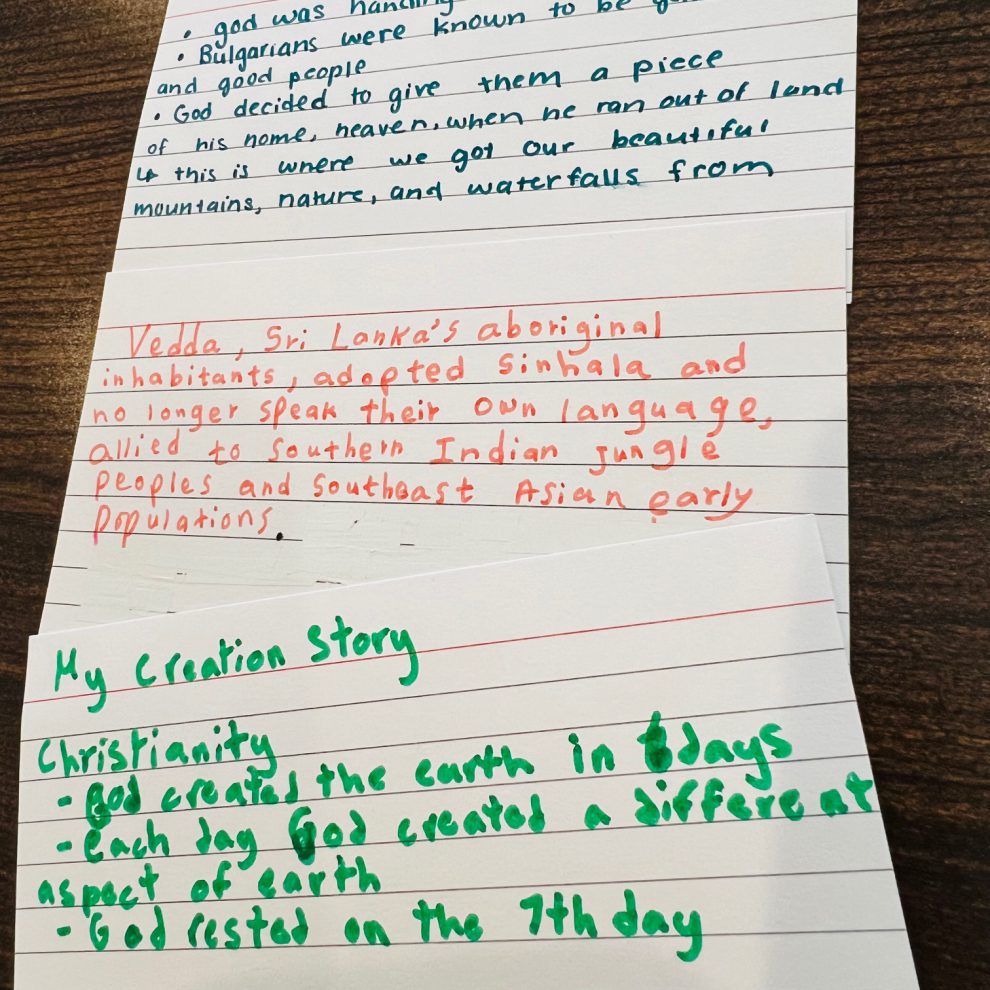 • god was handing
• Bulgarians were known to be
and good people
• God decided to give them a piece
of his home, heaven, when he ran out of land
↳ this is where we got our beautiful
mountains, nature, and waterfalls from
Vedda, Sri Lanka's aboriginal
inhabitants, adopted Sinhala and
no longer speak their own language,
allied to Southern Indian jungle
peoples and Southeast Asian early
populations.
My Creation Story
Christianity
- God created the earth in 6 days
- Each day God created a different
aspect of earth
- God rested on the 7th day